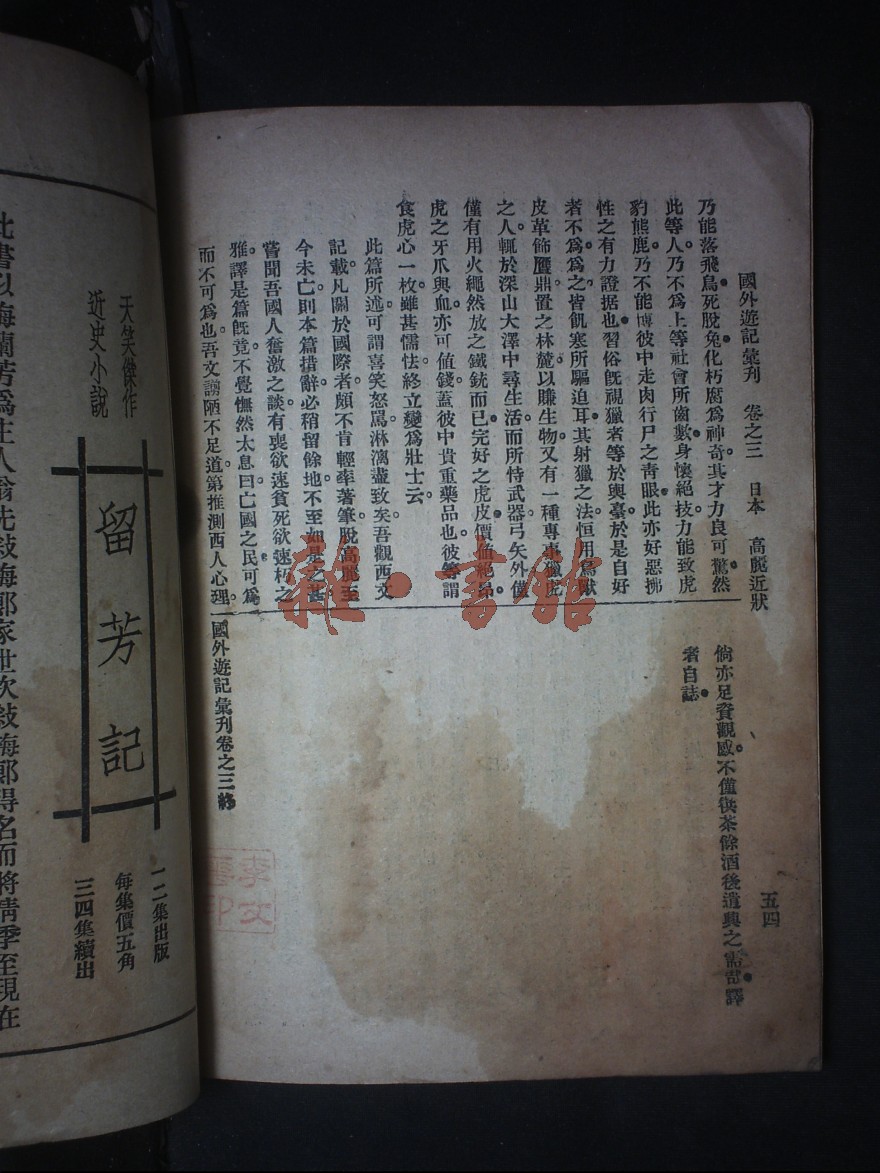 國外遊記彙刊　卷之三　日本　高麗近狀
五四
乃能落飛鳥死脫兔化朽腐爲神奇其才力良可驚然
此等人乃不爲上等社會所齒數身懷絕技力能致虎
豹熊鹿乃不能博彼中走肉行尸之靑眼此亦好惡拂
性之有力證据也習俗旣視獵者等於輿臺於是自好
者不爲爲之皆飢寒所驅迫耳其射獵之法恒用鳥獸
皮革飾鷹鼎置之林麓以賺生物又有一種專事獵虎
之人輒於深山大澤中尋生活而所恃武器弓矢外僅
僅有用火繩然放之鐵銃而已完好之虎皮價値絕昂
虎之牙爪與血亦可値錢蓋彼中貴重藥品也彼等謂
食虎心一枚雖甚懦怯終立變爲壯士云
此篇所述可謂喜笑怒罵淋漓盡致矣吾觀西文
記載凡關於國際者頗不肯輕率著筆脫高麗至
今未亡則本篇措辭必稍留餘地不至如是之甚
嘗聞吾國人奮激之談有喪欲速貧死欲速朽之
雅譯是篇旣竟不覺憮然太息曰亡國之民可爲
而不可爲也吾文謭陋不足道第推測西人心理
倘亦足資觀感不僅供茶餘酒後遣興之譯
者自誌
國外遊記彙刊卷之三終
雜·書館
李文
印
天笑傑作
近史小說
留芳記
一二集出版
每集價五角
三四集續出
此書以梅蘭芳爲主人翁先敍梅郞家世次敍梅郞得名而將淸季至現在